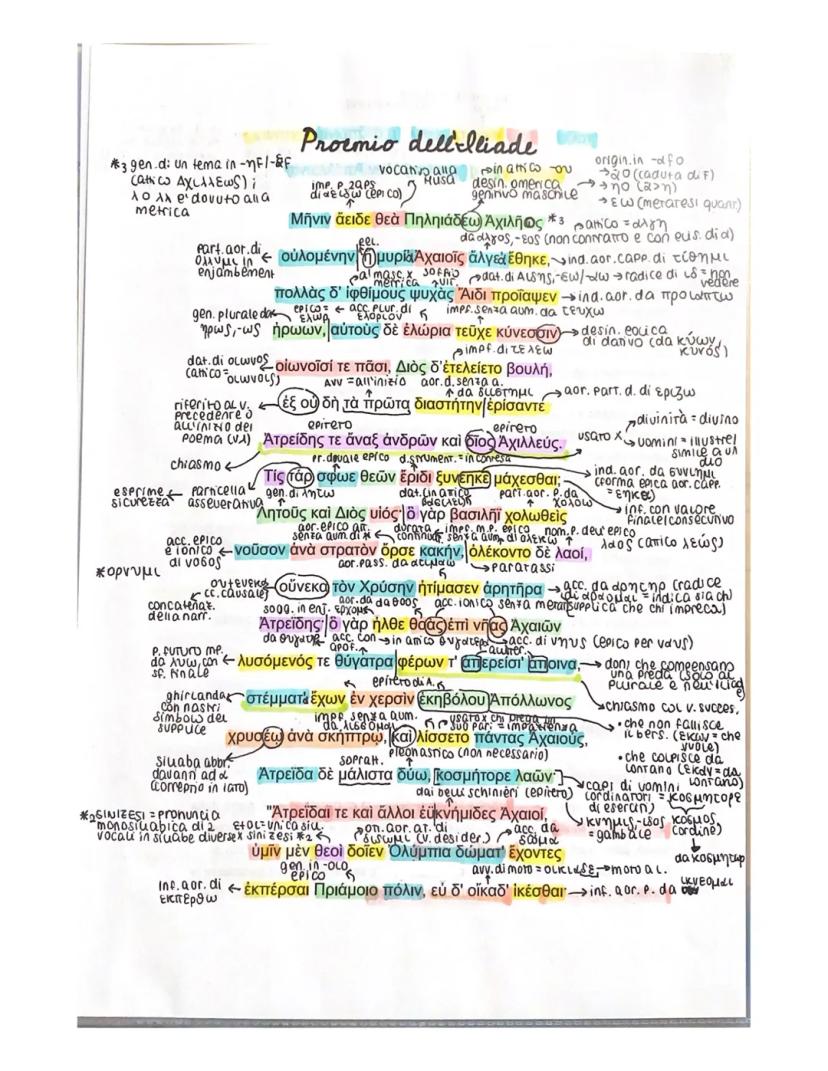 Proemio dell'Iliade
*3 gen. di un tema in -ηF/-εF
(attico Αχιλλεως) i
λ o λλ e' dovuto alla
metrica
vocativo alla
Musa
in attico -ου
desin. omerica
genitivo maschile
origin. in -αFo
→ αο (caduta di F)
→ ηο (α>η)
→ εω (metatesi quant.)
Μῆνιν ἄειδε θεὰ Πηληιάδεω Ἀχιλῆος *3
attico = αλγη
da αλγος, -εος (non contratto e con elis. di α)
part. aor. di
ολλυμι in
enjambement
οὐλομένην, ἣ μυρί' Ἀχαιοῖς ἄλγε' ἔθηκε,
ind. aor. capp. di τιθημι
→ radice di ιδ = non
vedere
πολλὰς δ' ἰφθίμους ψυχὰς Ἄϊδι προΐαψεν → ind. aor. da προιαπτω
gen. plurale da
ηρως, -ως
epico =
acc. plur. di
ελωριον
impf. senza aum. da τευχω
ἡρώων, αὐτοὺς δὲ ἑλώρια τεῦχε κύνεσσιν → desin. eolica
di dativo (da κυων,
κυνός)
impf. di τελεω
dat. di οιωνος
(attico = οιωνοις)
οἰωνοῖσί τε πᾶσι, Διὸς δ' ἐτελείετο βουλή,
avv = all'inizio
aor. d. senza a.
da διιστημι
aor. part. d. di εριζω
riferito al v.
precedente o
all'inizio del
poema (v.1)
ἐξ οὗ δὴ τὰ πρῶτα διαστήτην ἐρίσαντε
epiteto
epiteto
Ἀτρεΐδης τε ἄναξ ἀνδρῶν καὶ δῖος Ἀχιλλεύς.
usato x
divinità = divino
uomini = illustre/
simile a un
dio
chiasmo
pr. duale epico
d. strument. = in contesa
Τίς τάρ σφωε θεῶν ἔριδι ξυνέηκε μάχεσθαι;
ind. aor. da συνιημι
(forma epica aor. capp.
= εηκε)
inf. con valore
finale/consecutivo
esprime
sicurezza
particella
asseverativa
gen. di Λητω
dat. (in attico
βασιλει)
part. aor. p. da
χολοω
Λητοῦς καὶ Διὸς υἱός· ὃ γὰρ βασιλῆϊ χολωθεὶς
senza aum. di *
impf. m.p. epico
senza aum. di ολεκω
nom. p. dell'epico
λαος (attico λεώς)
acc. epico
e ionico
di νοσος
νοῦσον ἀνὰ στρατὸν ὄρσε κακήν, ὀλέκοντο δὲ λαοί,
*ορνυμι
aor. pass. da ατιμαω
paratassi
ουτενεκα
(c. causale)
concatenaz.
della narr.
οὕνεκα τὸν Χρύσην ἠτίμασεν ἀρητῆρα → acc. da αρητηρ (radice
di αραομαι = indica sia chi
supplica che chi impreca)
sogg. in enj.
aor. da
da θοος
acc. ionico senza metat.
Ἀτρεΐδης· ὃ γὰρ ἦλθε θοὰς ἐπὶ νῆας Ἀχαιῶν
da θυγατηρ
acc. con
apof.
in attico θυγατερα
acc. di νηυς (epico per ναυς)
p. futuro mp.
da λυω, con
sf. finale
λυσόμενός τε θύγατρα φέρων τ' ἀπερείσι' ἄποινα,
doni che compensano
una preda (solo al
plurale e nell'Iliade)
epiteto di A.
chiasmo col v. succes.
ghirlanda
con nastri
simbolo del
supplice
στέμματ' ἔχων ἐν χερσὶν ἑκηβόλου Ἀπόλλωνος
impf. senza aum.
da λισσομαι
• che non fallisce
il bers. (εκων = che
vuole)
• che colpisce da
lontano (εκαν = da
lontano)
χρυσέῳ ἀνὰ σκήπτρῳ, καὶ λίσσετο πάντας Ἀχαιούς,
pleonastico (non necessario)
sillaba abbr.
davanti ad α
(correptio in iato)
sopratt.
Ἀτρεΐδα δὲ μάλιστα δύω, κοσμήτορε λαῶν·
capi di uomini
(ordinatori = κοσμητορε
di eserciti)
dai begli schinieri (epiteto)
"Ἀτρεῖδαι τε καὶ ἄλλοι ἐϋκνήμιδες Ἀχαιοί,
κνημις, -ιδος
= gambale
κοσμος
(ordine)
da κοσμητωρ
*2 SINIZESI = pronuncia
monosillabica di 2
vocali in sillabe diverse
εοι = unica sill.
x sinizesi *2
ott. aor. at. di
διδωμι (v. desider.)
acc. da
δωμα
ὑμῖν μὲν θεοὶ δοῖεν Ὀλύμπια δώματ' ἔχοντες
gen. in -οιο
epico
avv. di moto = οικαδε → moto a l.
inf. aor. di
εκπερθω
ἐκπέρσαι Πριάμοιο πόλιν, εὖ δ' οἴκαδ' ἱκέσθαι· → inf. aor. p. da
ικνεομαι